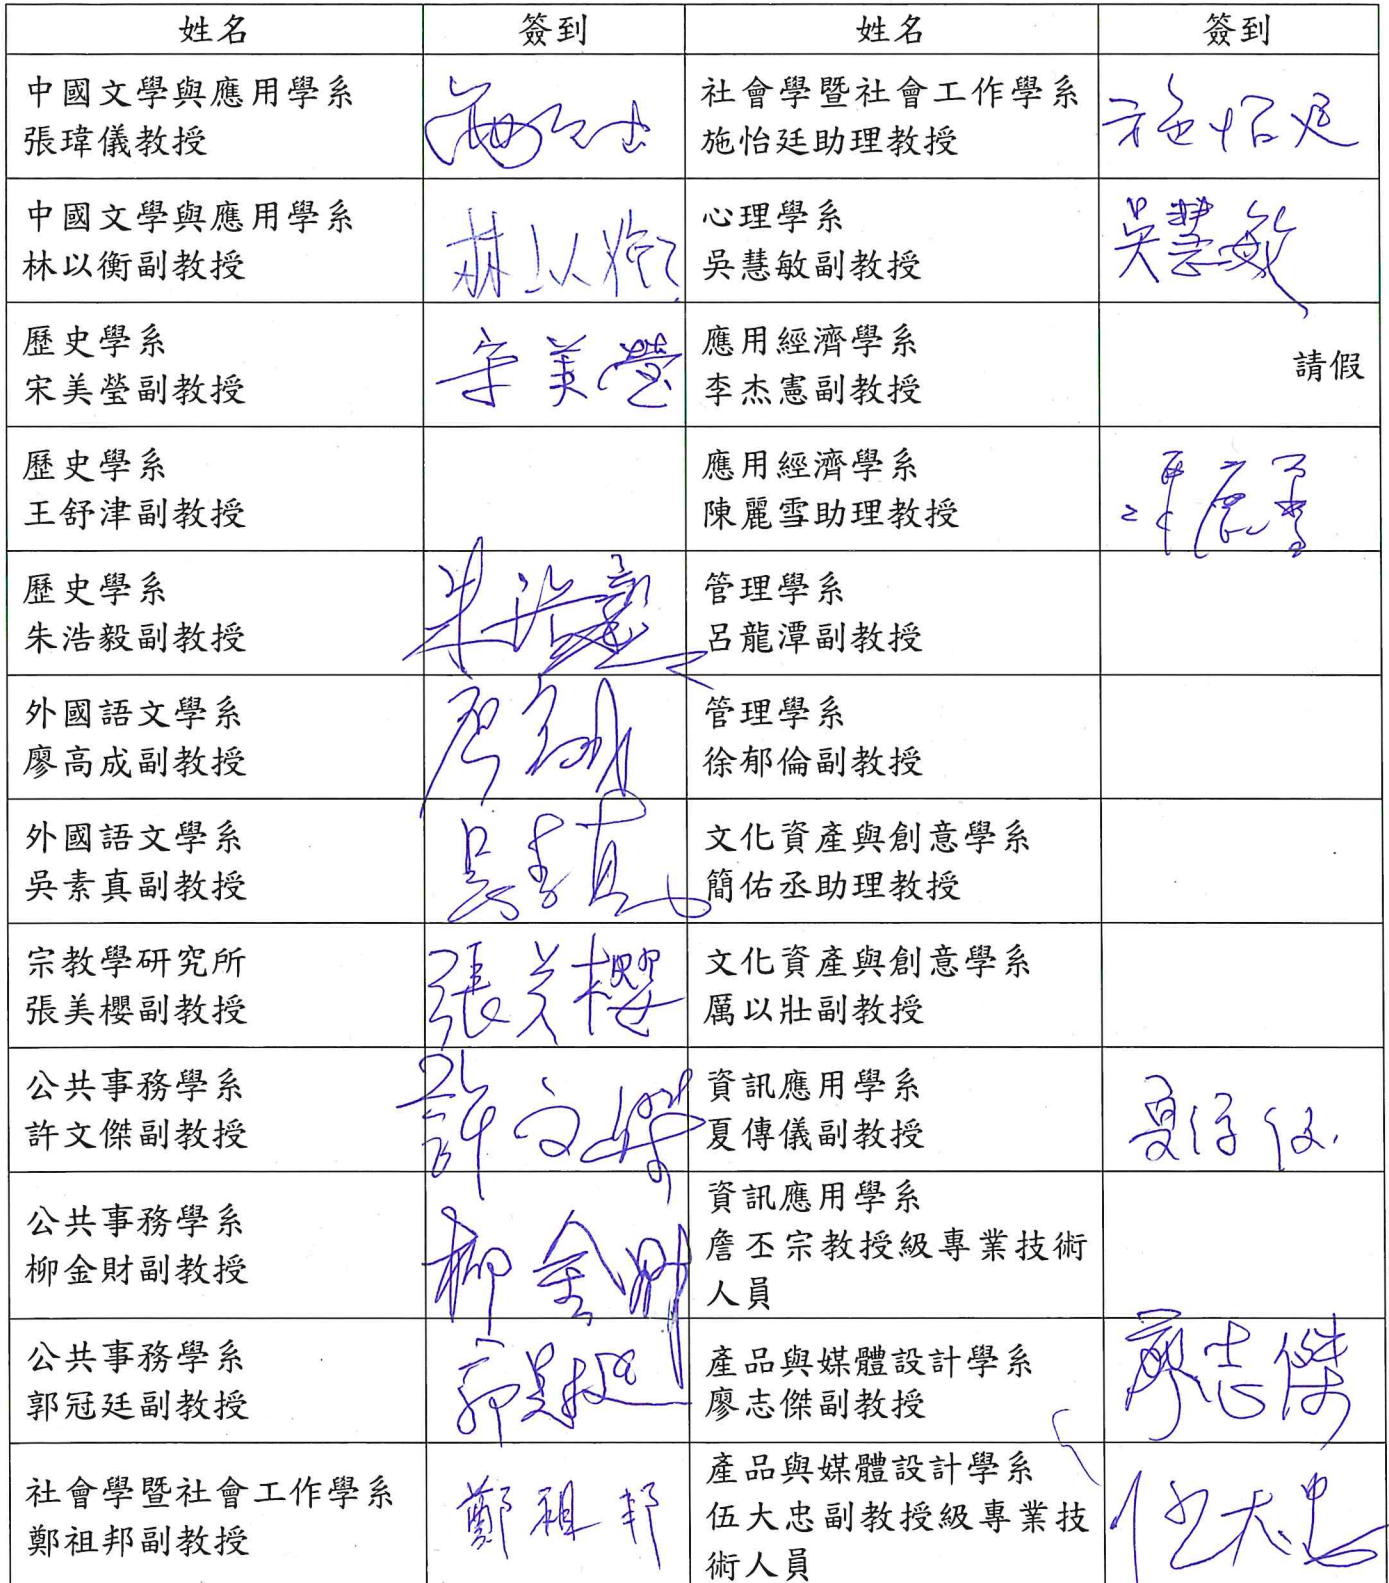 姓名 簽到 姓名 簽到
中國文學與應用學系
張瑋儀教授
社會學暨社會工作學系
施怡廷助理教授
施怡廷
中國文學與應用學系
林以衡副教授
林以衡
心理學系
吳慧敏副教授
吳慧敏
歷史學系
宋美瑩副教授
宋美瑩
應用經濟學系
李杰憲副教授
請假
歷史學系
王舒津副教授
應用經濟學系
陳麗雪助理教授
陳麗雪
歷史學系
朱浩毅副教授
朱浩毅
管理學系
呂龍潭副教授
外國語文學系
廖高成副教授
管理學系
徐郁倫副教授
外國語文學系
吳素真副教授
吳素真
文化資產與創意學系
簡佑丞助理教授
宗教學研究所
張美櫻副教授
張美櫻
文化資產與創意學系
厲以壯副教授
公共事務學系
許文傑副教授
許文傑
資訊應用學系
夏傳儀副教授
夏傳儀
公共事務學系
柳金財副教授
柳金財
資訊應用學系
詹丕宗教授級專業技術
人員
公共事務學系
郭冠廷副教授
產品與媒體設計學系
廖志傑副教授
廖志傑
社會學暨社會工作學系
鄭祖邦副教授
鄭祖邦
產品與媒體設計學系
伍大忠副教授級專業技
術人員
伍大忠